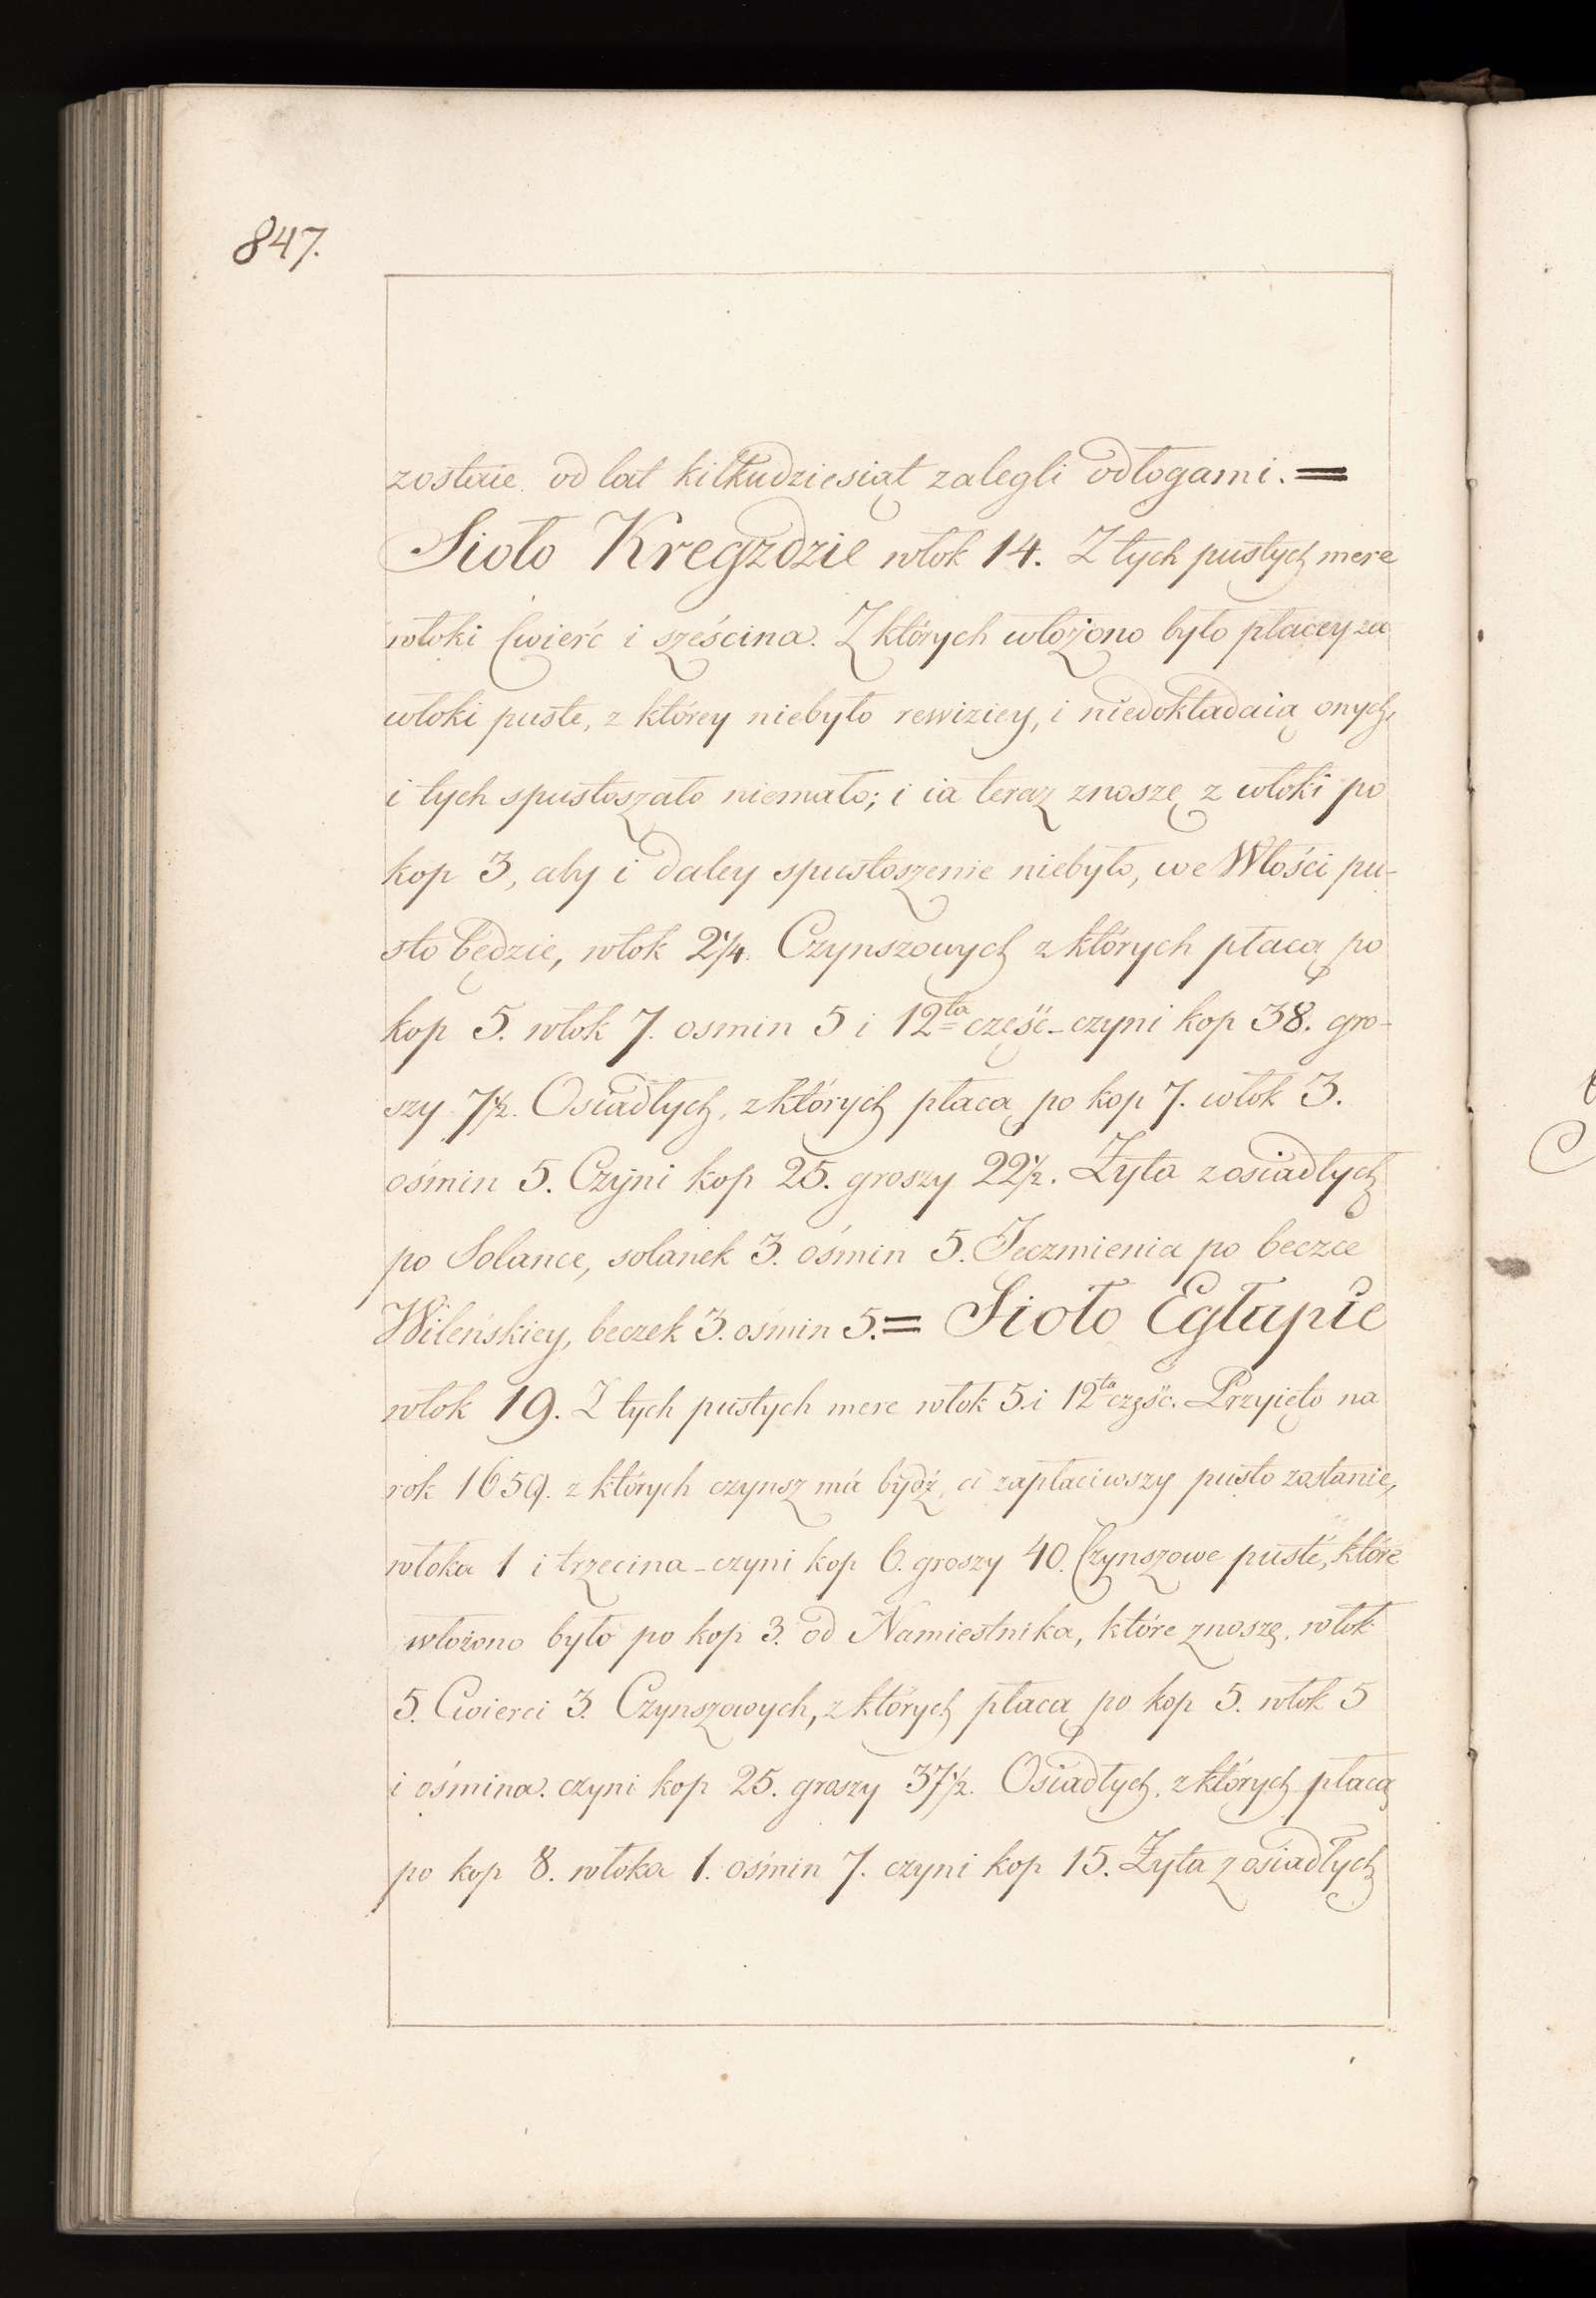 847.
zostaie od lat kilkudziesiąt zalegli odłogami. =
Sioło Kregzdzie włok 14. Z tych pustych mere
włoki Cwierć i sześcina. Z których włożono było płacey za
włoki puste, z którey niebyło rewiziey, i niedokładaią onych,
i tych spustoszało niemało; i ia teraz znoszę z włoki po
kop 3, aby i daley spustoszenie niebyło, we Włości pu-
sto będzie, włok 2 1/4. Czynszowych z których płacą po
kop 5. włok 7. osmin 5 i 12ta część - czyni kop 38. gro-
szy 7 1/2. Osiadłych, z których płacą po kop 7. włok 3.
ośmin 5. Czyni kop 25. groszy 22 1/2. Żyta z osiadłych
po Solance, solanek 3. ośmin 5. Jęczmienia po beczce
Wileńskiey, beczek 3. ośmin 5. = Sioło Egłupie
włok 19. Z tych pustych mere włok 5. i 12ta część. Przyięto na
rok 1659. z których czynsz má bydź, ci zapłaciwszy pusto zostanie,
włoka 1 i trzecina - czyni kop 6. groszy 40. Czynszowe pusté, które
włożono było po kop 3. od Namiestnika, które znoszę, włok
5. Cwierci 3. Czynszowych, z których płacą po kop 5. włok 5
i ośmina. czyni kop 25. groszy 37 1/2. Osiadłych, z których płacą
po kop 8. włoka 1. ośmin 7. czyni kop 15. Żyta z osiadłych